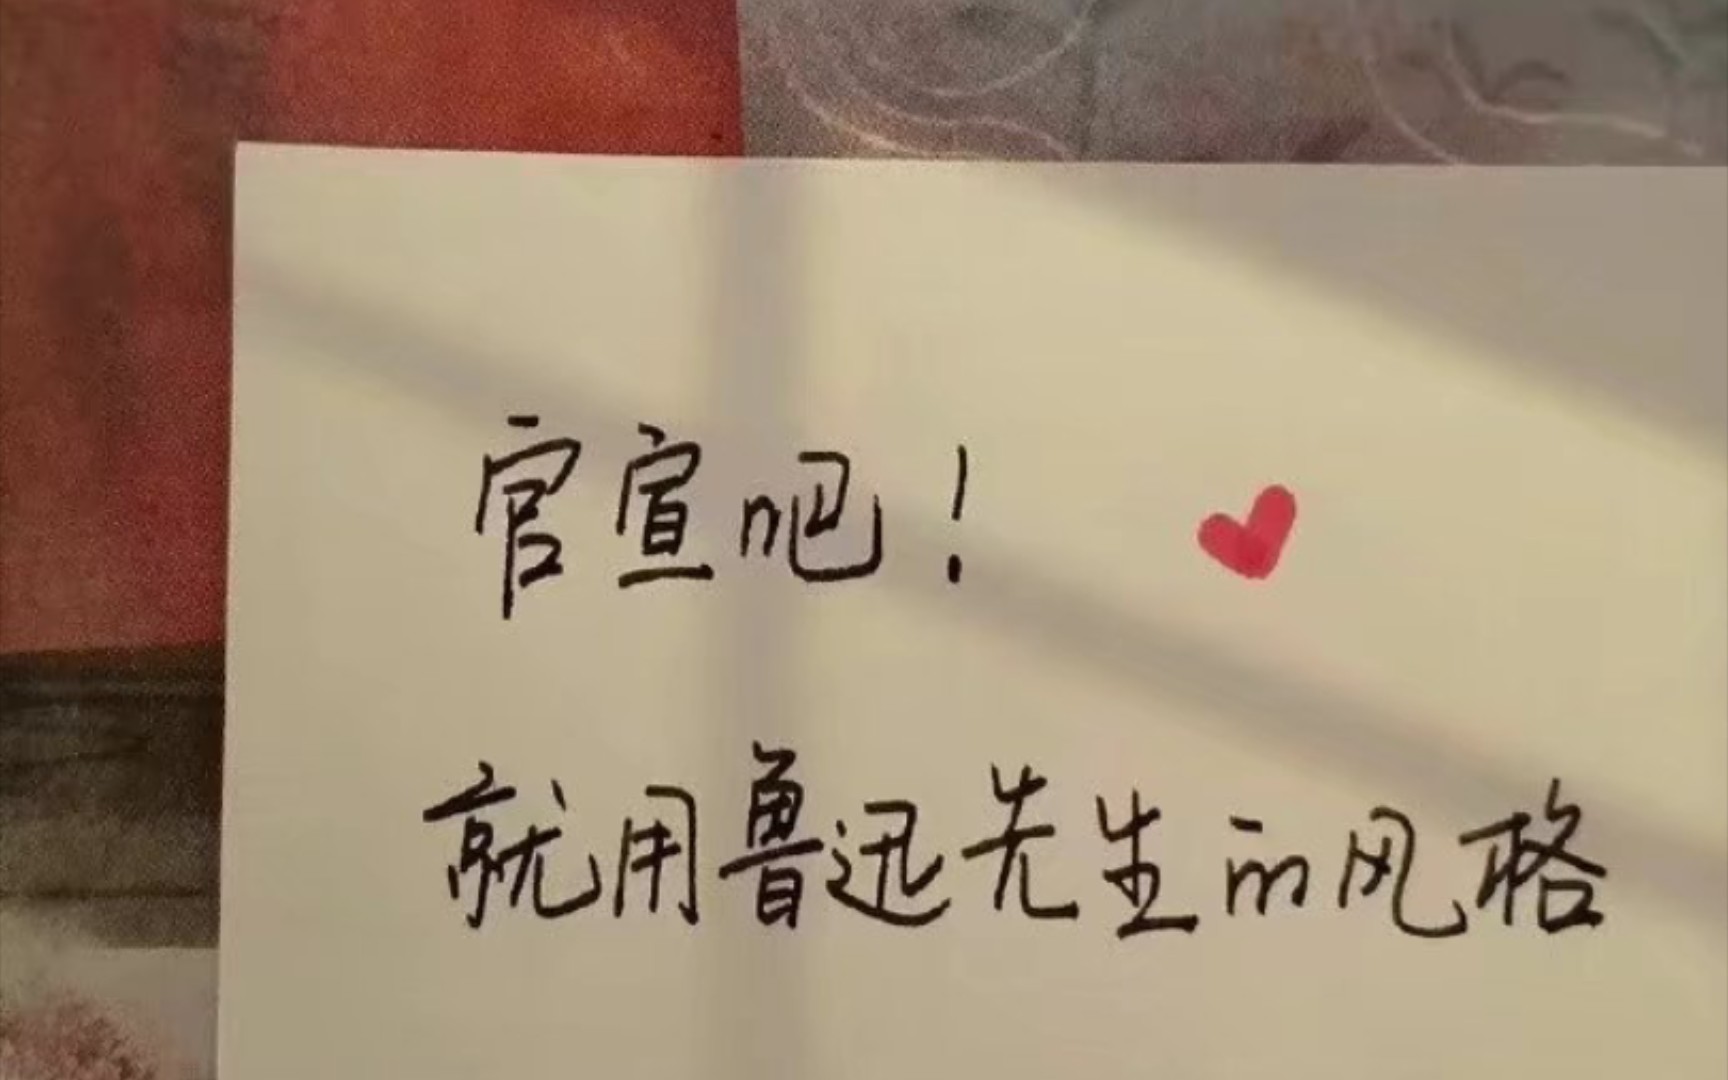 官宣吧！
就用鲁迅先生的风格